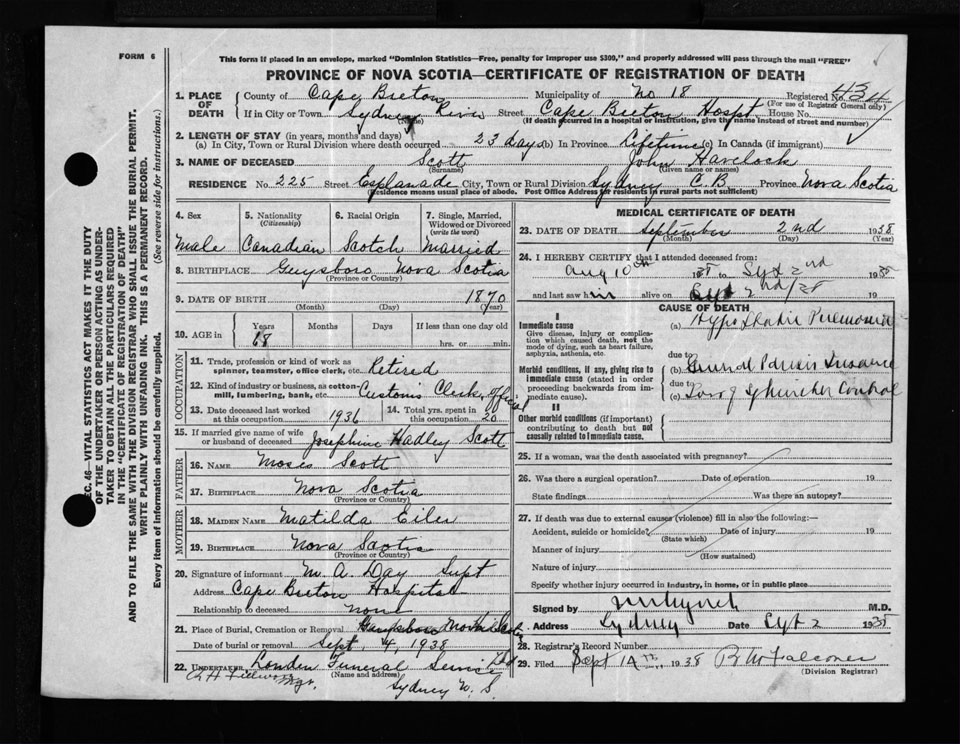 FORM 6
This form if placed in an envelope, marked "Dominion Statistics—Free, penalty for improper use $300," and properly addressed will pass through the mail "FREE"
PROVINCE OF NOVA SCOTIA—CERTIFICATE OF REGISTRATION OF DEATH
1. PLACE OF DEATH
County of Cape Breton Municipality of No 18 Registered No. 434
(For use of Registrar General only)
If in City or Town Sydney River Street Cape Breton Hospt House No.
(Name) (If death occurred in a hospital or institution, give the name instead of street and number)
2. LENGTH OF STAY (in years, months and days)
(a) In City, Town or Rural Division where death occurred 23 days (b) In Province Lifetime (c) In Canada (if immigrant)
3. NAME OF DECEASED Scott John Havelock
(Surname) (Given name or names)
RESIDENCE No. 225 Street Esplanade City, Town or Rural Division Sydney C.B. Province Nova Scotia
(Residence means usual place of abode. Post Office Address for residents in rural parts not sufficient)
4. Sex
Male
5. Nationality
(Citizenship)
Canadian
6. Racial Origin
Scotch
7. Single, Married, Widowed or Divorced
(write the word)
Married
8. BIRTHPLACE Guysboro Nova Scotia
(Province or Country)
9. DATE OF BIRTH 1870
(Month) (Day) (Year)
10. AGE in Years Months Days If less than one day old
68 hrs. or min.
OCCUPATION
11. Trade, profession or kind of work as spinner, teamster, office clerk, etc. Retired
12. Kind of industry or business, as cotton-mill, lumbering, bank, etc. Customs Clerk, Official
13. Date deceased last worked at this occupation 1936
14. Total yrs. spent in this occupation 20
15. If married give name of wife or husband of deceased Josephine Hadley Scott
FATHER
16. NAME Moses Scott
17. BIRTHPLACE Nova Scotia
(Province or Country)
MOTHER
18. MAIDEN NAME Matilda
19. BIRTHPLACE Nova Scotia
(Province or Country)
20. Signature of informant M A Day Supt
Address Cape Breton Hospital
Relationship to deceased none
21. Place of Burial, Cremation or Removal Guysboro Nova Scotia
Date of burial or removal Sept. 4, 1938
22. UNDERTAKER Funeral Service Ltd
(Name and address)
Mgr. Sydney N. S.
MEDICAL CERTIFICATE OF DEATH
23. DATE OF DEATH September 2nd 1938
(Month) (Day) (Year)
24. I HEREBY CERTIFY that I attended deceased from:
Aug 10th 1938 to Sept 2nd 1938
and last saw him alive on Sept 2nd/38 19
CAUSE OF DEATH
I
Immediate cause
Give disease, injury or complication which caused death, not the mode of dying, such as heart failure, asphyxia, asthenia, etc.
(a) Hypostatic Pneumonia
due to
Morbid conditions, if any, giving rise to immediate cause (stated in order proceeding backwards from immediate cause).
(b) General Paresis Insane
due to
(c) Loss of Sphincter Control
II
Other morbid conditions (if important) contributing to death but not causally related to immediate cause.
25. If a woman, was the death associated with pregnancy?
26. Was there a surgical operation? Date of operation 19
State findings Was there an autopsy?
27. If death was due to external causes (violence) fill in also the following:—
Accident, suicide or homicide? Date of injury 19
(State which)
Manner of injury
(How sustained)
Nature of injury
Specify whether injury occurred in industry, in home, or in public place
Signed by M.D.
Address Sydney Date Sept 2 1938
28. Registrar's Record Number
29. Filed Sept 14th 1938 R W Falconer
(Division Registrar)
SEC. 46—VITAL STATISTICS ACT MAKES IT THE DUTY
OF THE UNDERTAKER OR PERSON ACTING AS UNDER-
TAKER TO OBTAIN ALL THE PARTICULARS REQUIRED
IN THE "CERTIFICATE OF REGISTRATION OF DEATH"
AND TO FILE THE SAME WITH THE DIVISION REGISTRAR WHO SHALL ISSUE THE BURIAL PERMIT.
WRITE PLAINLY WITH UNFADING INK. THIS IS A PERMANENT RECORD.
Every item of information should be carefully supplied. (See reverse side for instructions.)